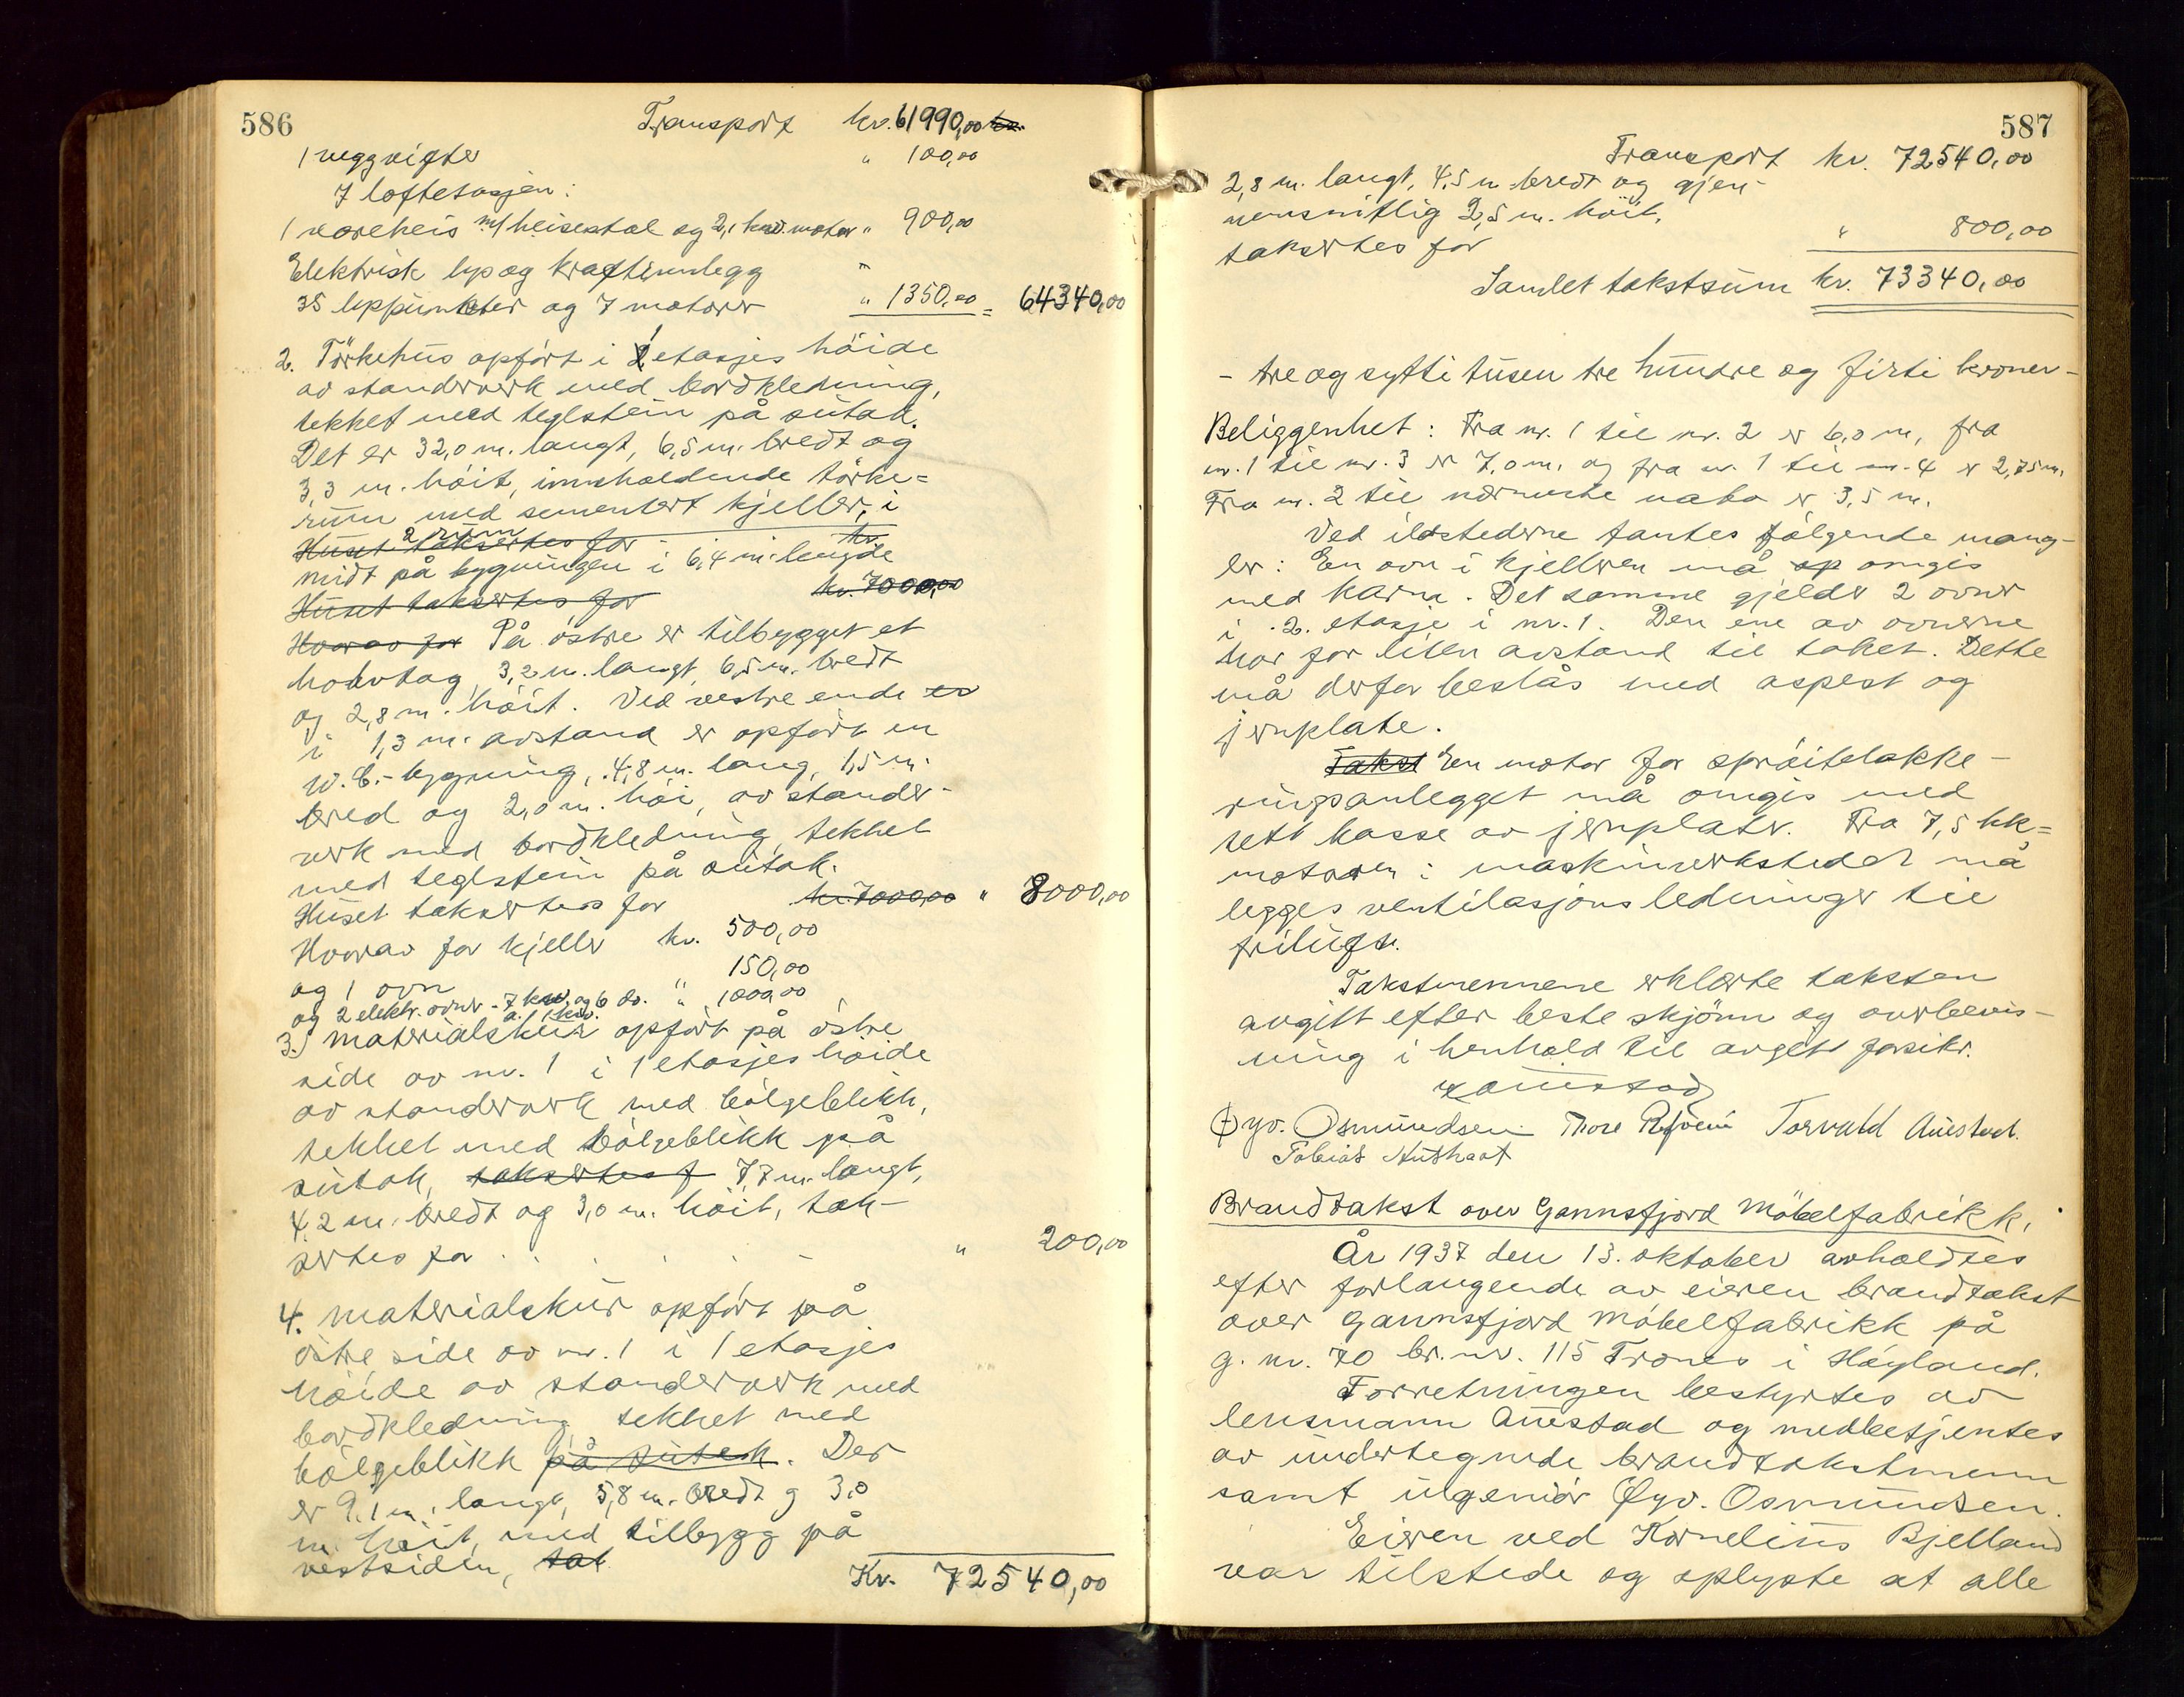 586
Transport kr. 61990,00 kr.
1 veggvifte " 100,00
I loftetasjen:
1 vareheis m/heisestol og 2,1 kw. motor " 900,00
Elektrisk lys og kraftinnlegg "
35 lyspunkter og 7 motorer " 1350,00 = 64340,00
2. Tørkehus opført i 1 etasjes høide
av standerverk med bordkledning,
tekket med teglstein på sutak.
Det er 32,0 m. langt, 6,5 m. bredt og
3,3 m. høit, inneholdende tørke=
rum med sementert kjeller, i
2 rum
Huset takseres for kr.
midt på bygningen i 6,4 m. lengde
Huset takseres for kr. 7000,00
Hvorav for På østre er tilbygget et
halvtag 3,2 m. langt, 6,5 m. bredt
og 2,8 m. høit. Ved vestre ende er
i 1,3 m. avstand er opført en
W.C.-bygning, 4,8 m. lang, 1,5 m.
bred og 2,0 m. høi, av stander-
verk med bordkledning tekket
med teglstein på sutak.
Huset takseres for kr. 7000,00 " 8000,00
Hvorav for kjeller kr. 500,00
og 1 ovn 150,00
og 2 elektr. ovner - 7 kw. og 6 do. " 1000,00
a. 1 kw.
3. Materialskur opført på østre
side av nr. 1 i 1 etasjes høide
av standerverk med bølgeblikk,
tekket med bølgeblikk på
sutak, takseres f 7,7 m. langt,
4,2 m. bredt og 3,0 m. høit, tak-
seres for " 200,00
4. Materialskur opført på
østre side av nr. 1 i 1 etasjes
høide av standerverk med
bordkledning, tekket med
bølgeblikk på sutak. Det
er 9,1 m. langt, 5,8 m. bredt og 3,0
m. høit, med tilbygg på
vestsiden, tak
Kr. 72540,00
587
Transport kr. 72540,00
2,8 m. langt, 4,5 m bredt og gjen-
nemsnitlig 2,5 m. høit,
takseres for " 800,00
Samlet takstsum kr. 73340,00
- tre og sytti tusen tre hundre og firti kroner -
Beliggenhet: Fra nr. 1 til nr. 2 er 6,0 m, fra
nr. 1 til nr. 3 er 7,0 m. og fra nr. 1 til nr. 4 er 2,75 m.
Fra nr. 2 til nærmeste nabo er 3,5 m.
Ved ildstederne fantes følgende mang-
ler: En ovn i kjelleren må op omgis
med karm. Det samme gjelder 2 ovner
i 2. etasje i nr. 1. Den ene av ovnerne
har for liten avstand til taket. Dette
må derfor beslås med aspest og
jernplate.
Takst En motor for sprøitelakke-
ringsanlegget må omgis med
tett kasse av jernplater. Fra 7,5 hk=
motoren i maskinverkstedet må
legges ventilasjonsledninger til
friluft.
Takstmennene erklærte taksten
avgitt efter beste skjønn og overbevis-
ning i henhold til avgitt forsikr.
Auestad
Øyv. Osmundsen Thore Torvald Auestad.
Tobias
Brandtakst over Gannsfjord Møbelfabrikk.
År 1937 den 13. oktober avholdtes
efter forlangende av eieren brandtakst
over Gannsfjord Møbelfabrikk på
g. nr. 70 br. nr. 115 Trones i Høyland.
Forretningen bestyrtes av
lensmann Auestad og medbetjentes
av undertegnede brandtakstmenn
samt ingeniør Øyv. Osmundsen.
Eieren ved Kornelius Bjelland
var tilstede og oplyste at alle